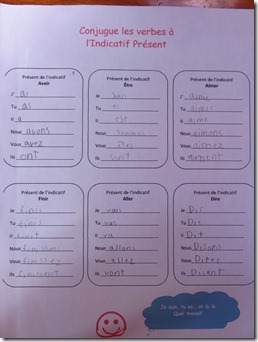 Conjugue les verbes à
l'Indicatif Présent
Présent de l'indicatif
Avoir
J' ai
Tu as
Il a
Nous avons
Vous avez
Ils ont
Présent de l'indicatif
Être
Je suis
Tu
Il est
Nous sommes
Vous êtes
Ils sont
Présent de l'indicatif
Aimer
J' aime
Tu aimes
Il aime
Nous aimons
Vous aimez
Ils aiment
Présent de l'indicatif
Finir
Je finis
Tu finis
Il finit
Nous finissons
Vous finissez
Ils finissent
Présent de l'indicatif
Aller
Je vais
Tu vas
Il va
Nous allons
Vous allez
Ils vont
Présent de l'indicatif
Dire
Je Dis
Tu Dis
Il Dit
Nous Disons
Vous Dites
Ils Disent
Je suis, tu es, oh là là
Quel travail